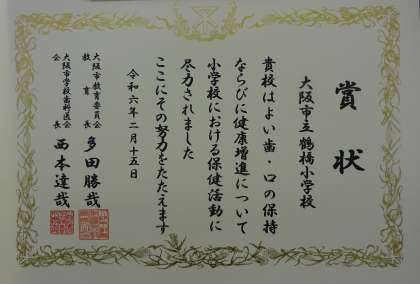 賞状
大阪市立鶴橋小学校
貴校はよい歯・口の保持
ならびに健康増進について
小学校における保健活動に
尽力されました
ここにその努力をたたえます
令和六年二月十五日
大阪市教育委員会
教育長 多田勝哉
大阪市学校歯科医会
会長 西本達哉